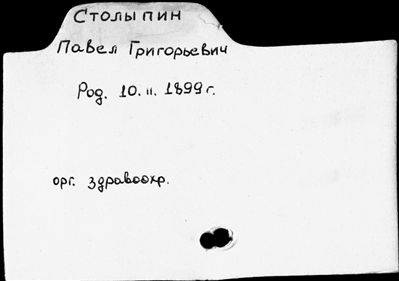 Столыпин
Павел Григорьевич
Род. 10.II.1899 г.
орг. здравоохр.